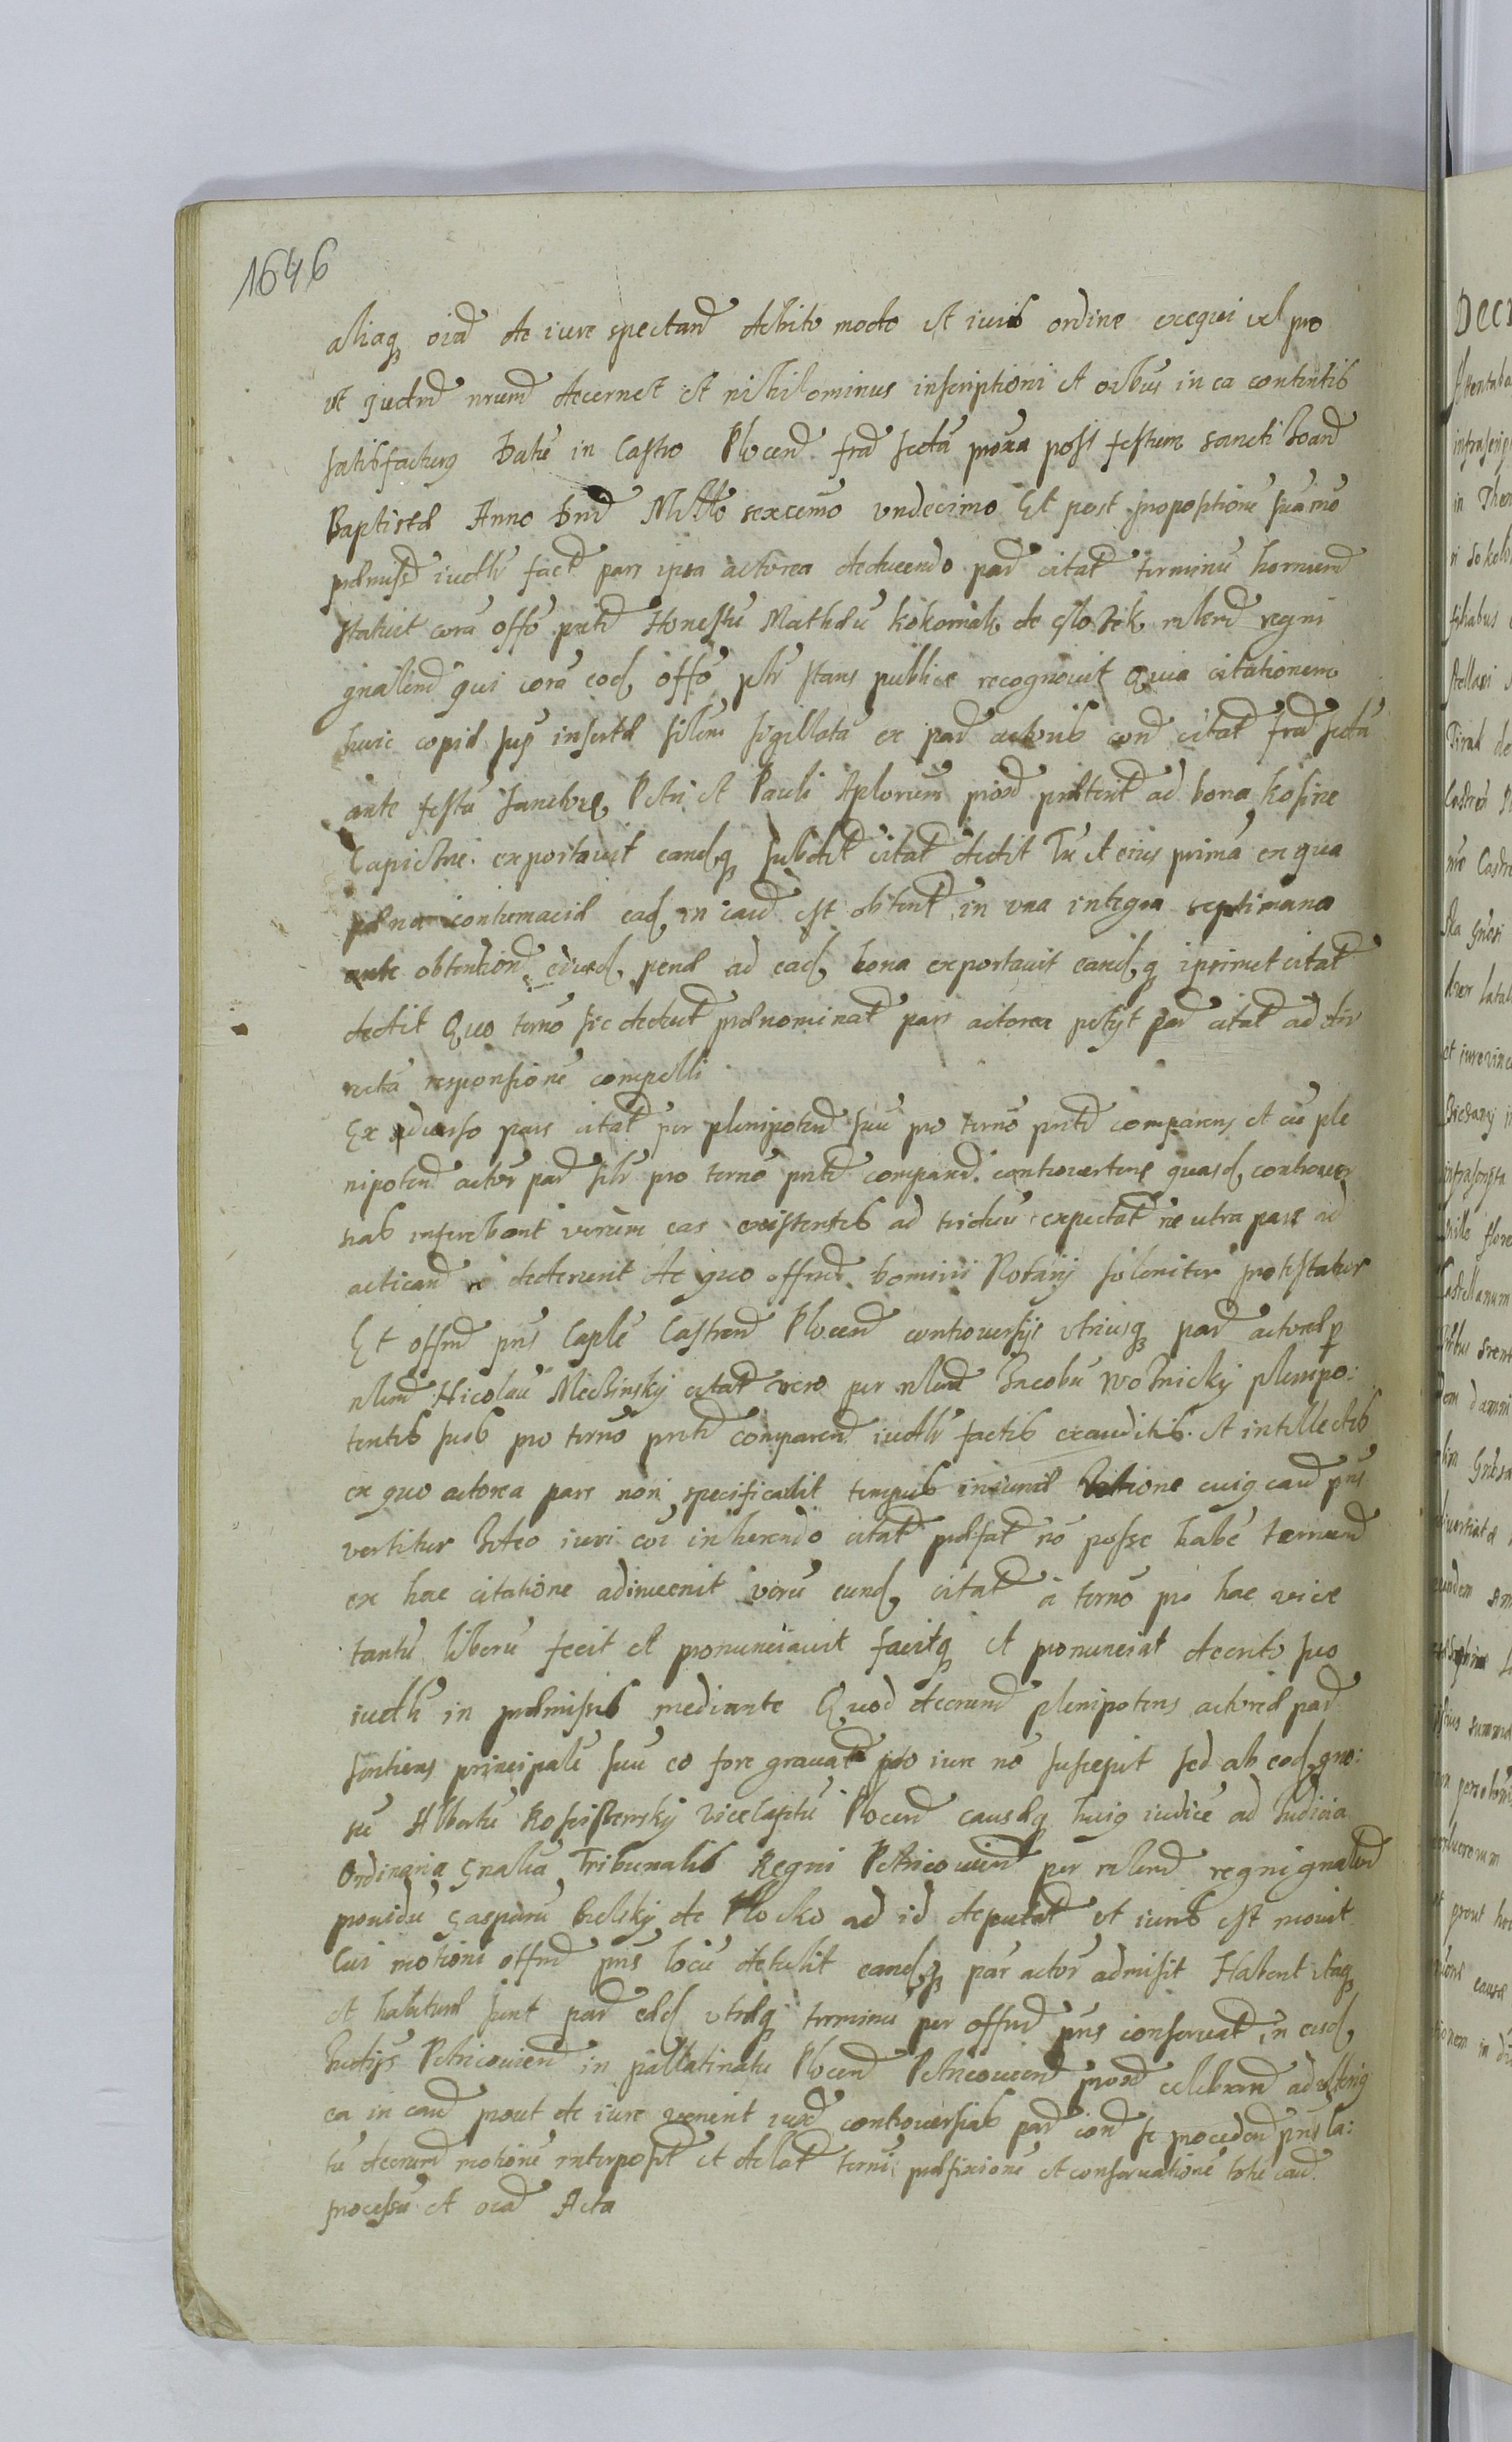 1646
aliaq oia de iure spectan debito modo et iuris ordine exequi vel pro
ut iudm nrum decernet et nihilominus inscriptioni et oibus in ea contentis
satisfacturg Datu in Castro Plocen fra sexta proxa post festum sancti Joan
Baptistæ Anno Dni Millo sexcemo undecimo Et post propositione suamo
præmiss iudlr fact pars ipsa actorea deducendo par citat terminu hornum
statuit cora offo pnti Honestu Mathæu kokoniak de relem regni
gnalem qui cora eod offo plr stans publice recognouit Quia citationem
huic copiæ sup insertæ silem sigillata ex par actoris con citat fra sexta
ante festa Sanctorum Petri et Pauli Aplorum prox prættent ad bona kosine
Capiczne exportauit eandq subdit citat dedit Tu et eius prima ex qua
pæna contumaciæ ead in cau est obtent in una integra septimana
ante obtention eiusd penæ ad ead bona exportauit eandq iprimet citat
dedit Quo terno sic deduct prænominat pars actorea petijt par citat ad dir
recta responsione compelli
Ex aduerso pars citat per plenipoten suu pro terno pnti comparens et cu ple
nipoten actor par silr pro terno pnti comparen controuertens quasd controuer
sias inferebant verum eas existentes ad triduu expectat ne utra pars ad
actican dederunt de quo offm domini Notarij soleniter protestatur
Et offm pns Caple Castren Plocen controuersijs utriusq par actoreæ p
nlem Nicolau Mechinsky citat vero per nlem Jacobu Woznicky plenipo:
tentes suos pro terno pnti comparen iudlr factis exauditis et intellectis
ex quo actorea pars non specificauit tempus iniuriæ Ratione cuig cau pns
vertitur Ideo iuri coi inherendo citat præfat no posse habe terminum
ex hac citatione adinuenit veru eund citat a terno pro hac vice
tantu liberu fecit et pronunciauit facitq et pronunciat decreto suo
iudlr in præmissis mediante Quod decretum plenipotens actoreæ par
sentiens principale suu eo fore grauat pro iure no suscepit sed ab eod gno:
su Albertu Kosciszewsky ViceCaptu Plocen causæq huig iudice ad Iudicia
Ordinaria Gnalia Tribunalis Regni Petricouien per relem regni gnalem
prouidu Gasparu Bielsky de Plocko ad id deputat ut iuris est mouit
Cui motioni offm pns locu detulit eandq par actor admisit Habent itaq
et habituræ sunt par eæd utræq terminu per offm pns conseruat in eisd
Iudijs Petricouien in pallatinatu Plocen Petricouien prox celebran ad ulterig
ea in cau prout de iure venerit iux controuersias par con se proceden pns la:
tu decretum motione interposit et delat terni præfixione et conseruatione totu cau
processu et oia Acta